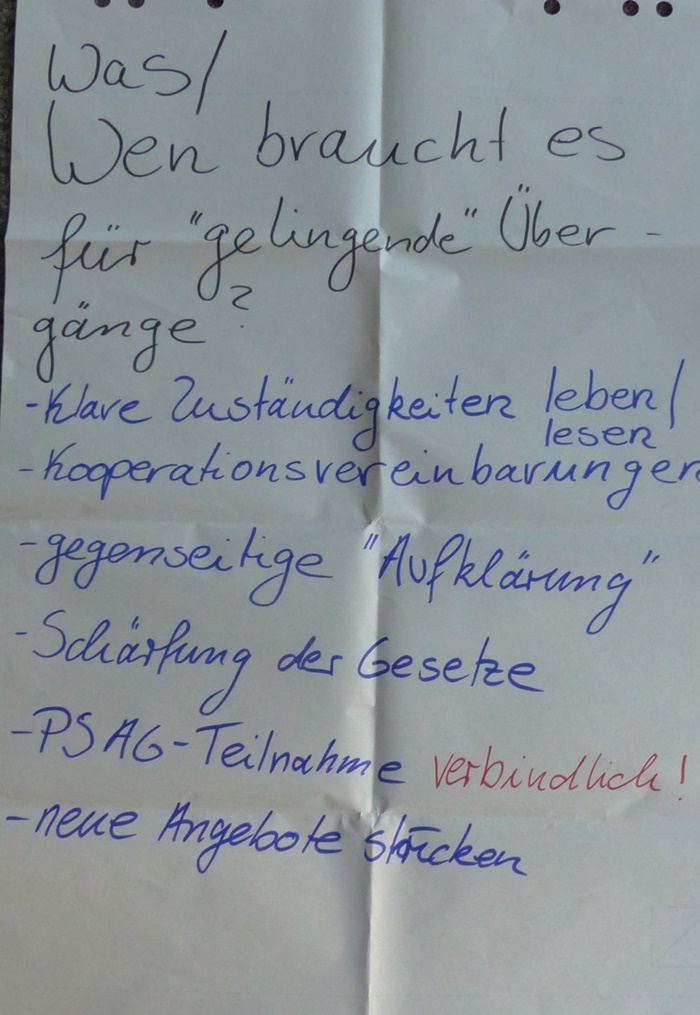 Was/
Wen braucht es
für "gelingende" Über-
gänge?
-Klare Zuständigkeiten leben/
lesen
-Kooperationsvereinbarungen
-gegenseitige "Aufklärung"
-Schärfung der Gesetze
-PSAG-Teilnahme verbindlich!
-neue Angebote stricken